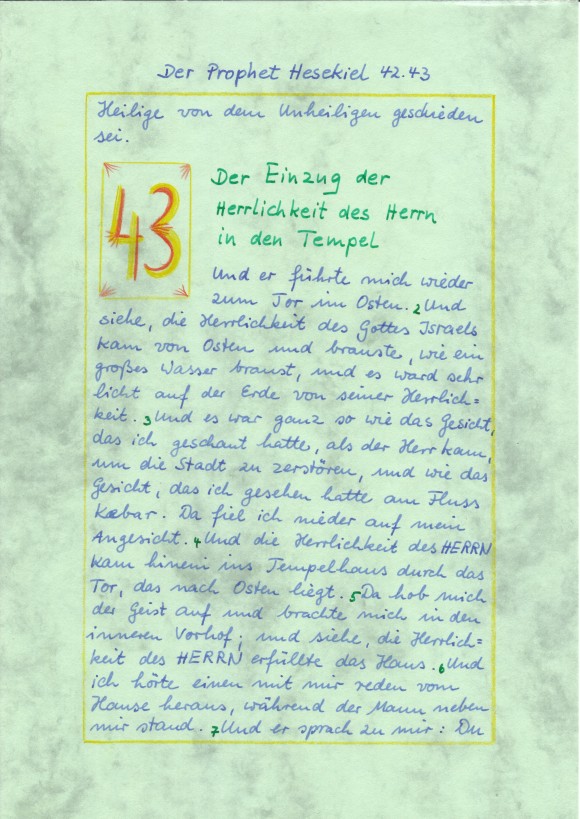 Der Prophet Hesekiel 42.43
Heilige von dem Unheiligen geschieden
sei.
43
Der Einzug der
Herrlichkeit des Herrn
in den Tempel
Und er führte mich wieder
zum Tor im Osten. 2 Und
siehe, die Herrlichkeit des Gottes Israels
kam von Osten und brauste, wie ein
großes Wasser braust, und es ward sehr
licht auf der Erde von seiner Herrlich=
keit. 3 Und es war ganz so wie das Gesicht,
das ich geschaut hatte, als der Herr kam,
um die Stadt zu zerstören, und wie das
Gesicht, das ich gesehen hatte am Fluss
Kebar. Da fiel ich nieder auf mein
Angesicht. 4 Und die Herrlichkeit des HERRN
kam hinein ins Tempelhaus durch das
Tor, das nach Osten liegt. 5 Da hob mich
der Geist auf und brachte mich in den
inneren Vorhof; und siehe, die Herrlich=
keit des HERRN erfüllte das Haus. 6 Und
ich hörte einen mit mir reden vom
Hause heraus, während der Mann neben
mir stand. 7 Und er sprach zu mir: Du